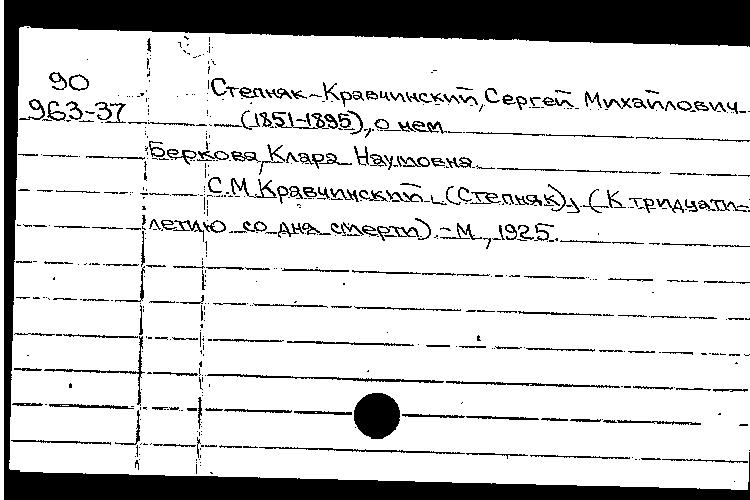 90
963-37
Степняк-Кравчинский, Сергей Михайлович
(1851-1895), о нем
Беркова, Клара Наумовна
С.М. Кравчинский. (Степняк), (К тридцати-
летию со дня смерти) - М., 1925.